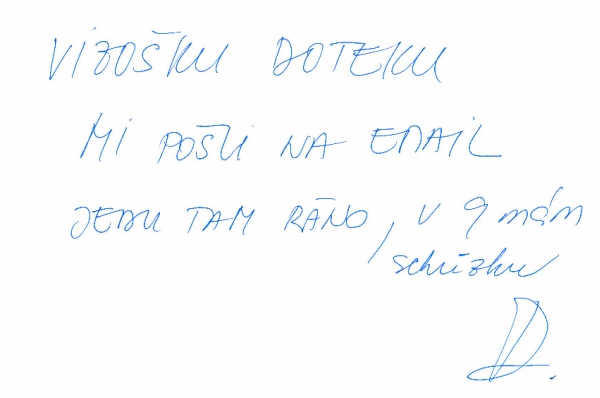 VIZOŠKU DOTEKU
MI POŠLI NA EMAIL
JEDU TAM RÁNO, V 9 mám
schůzku
D.